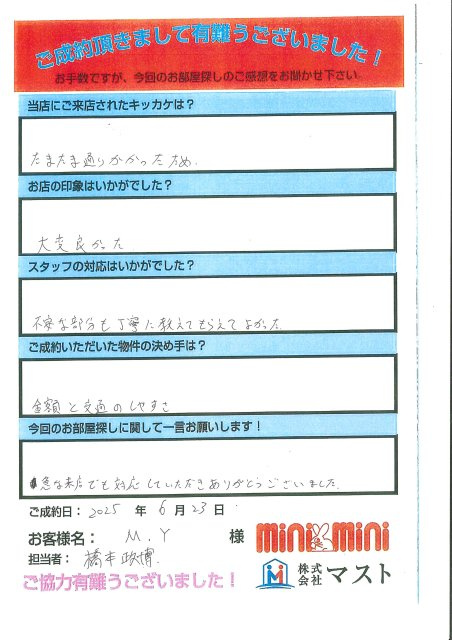 ご成約頂きまして有難うございました！
お手数ですが、今回のお部屋探しのご感想をお聞かせ下さい。
当店にご来店されたキッカケは？
たまたま通りかかったため。
お店の印象はいかがでした？
大変良かった
スタッフの対応はいかがでした？
不安な部分も丁寧に教えてもらえてよかった
ご成約いただいた物件の決め手は？
金額と交通のしやすさ
今回のお部屋探しに関して一言お願いします！
急な来店でも対応していただきありがとうございました。
ご成約日：2025年6月23日
お客様名：M.Y様
担当者：橋本政博
ご協力有難うございました！
mini mini
株式会社マスト